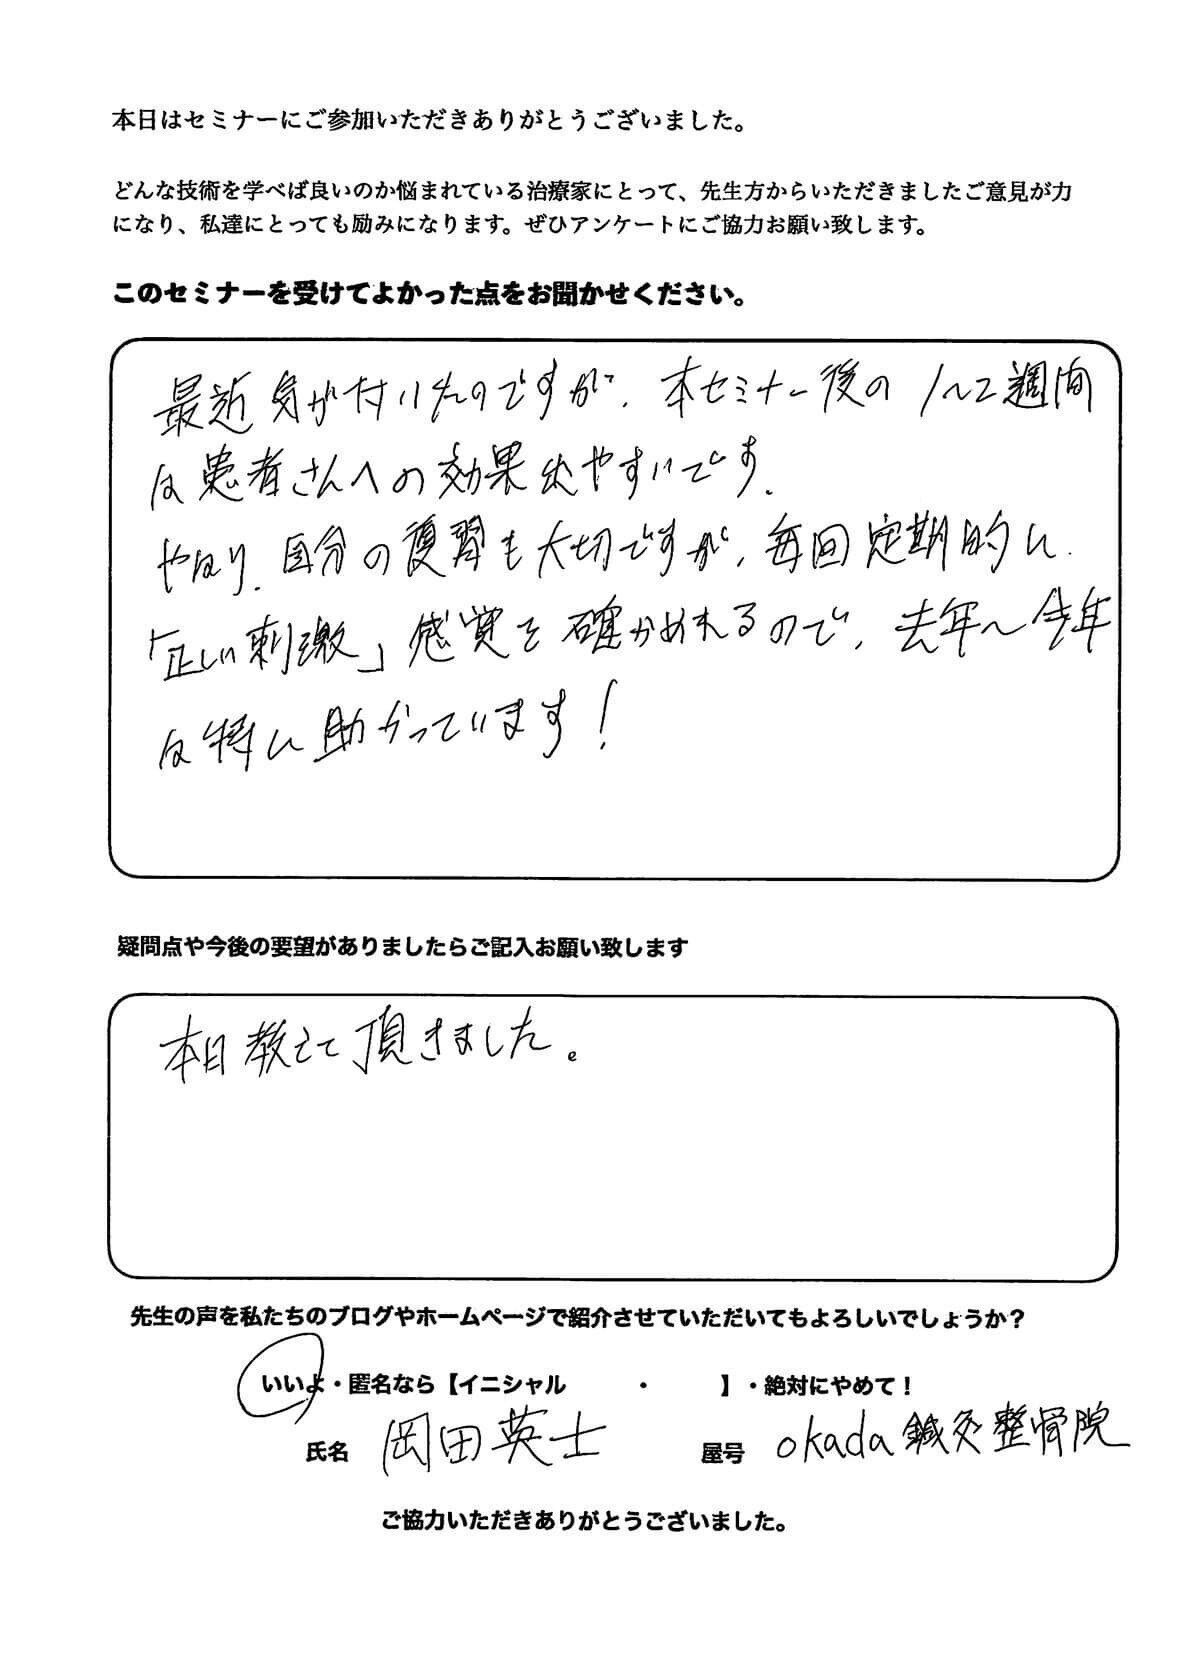 本日はセミナーにご参加いただきありがとうございました。
どんな技術を学べば良いのか悩まれている治療家にとって、先生方からいただきましたご意見が力
になり、私達にとっても励みになります。ぜひアンケートにご協力お願い致します。
このセミナーを受けてよかった点をお聞かせください。
最近気が付いたのですが、本セミナー後の1〜2週間
は患者さんへの効果出やすいです。
やはり、自分の復習も大切ですが、毎回定期的に
「正しい刺激」感覚を確かめれるので、去年〜今年
は特に助かっています!
疑問点や今後の要望がありましたらご記入お願い致します
本日教えて頂きました。
先生の声を私たちのブログやホームページで紹介させていただいてもよろしいでしょうか?
いいよ・匿名なら【イニシャル ・ 】・絶対にやめて!
氏名 岡田英士 屋号 okada鍼灸整骨院
ご協力いただきありがとうございました。